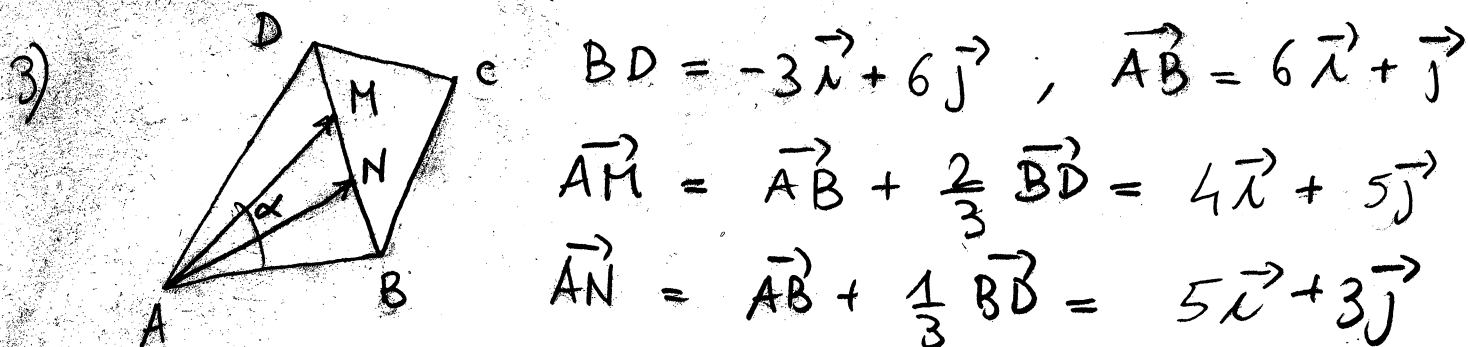 3)
D
C
M
N
α
A
B
BD = -3i⃗ + 6j⃗ , AB⃗ = 6i⃗ + j⃗
AM⃗ = AB⃗ + 2/3 BD⃗ = 4i⃗ + 5j⃗
AN⃗ = AB⃗ + 1/3 BD⃗ = 5i⃗ + 3j⃗